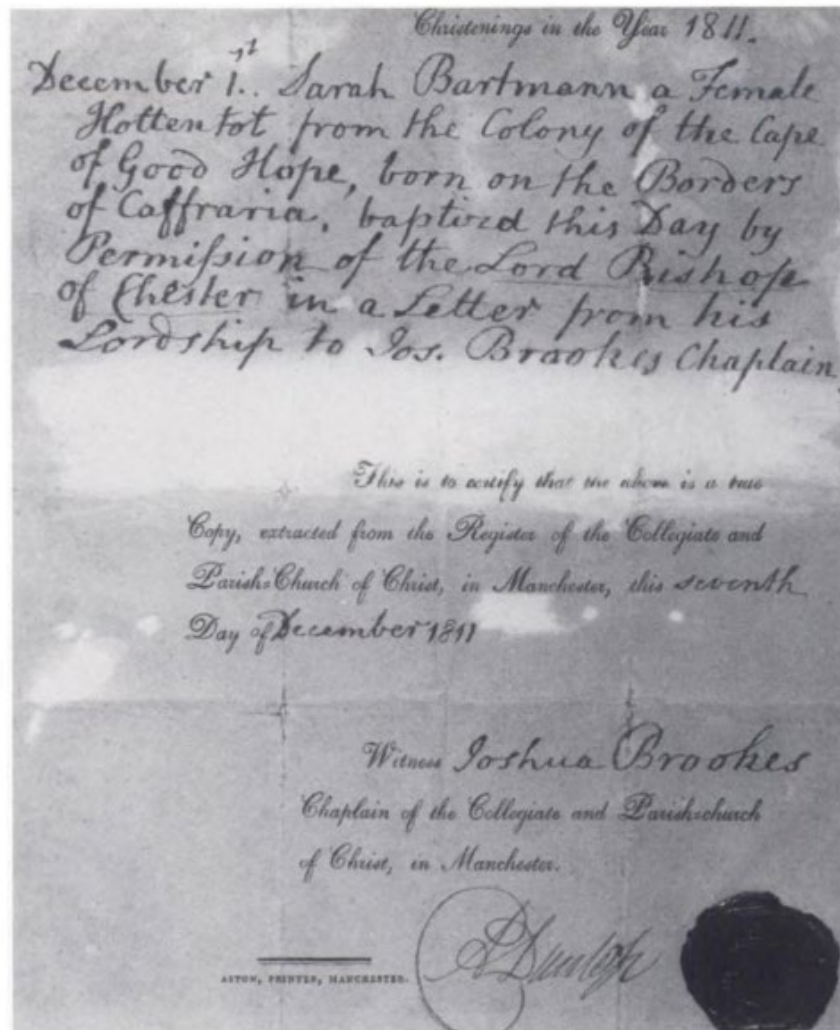 Christenings in the Year 1811.
December 1st. Sarah Bartmann a Female
Hottentot from the Colony of the Cape
of Good Hope, born on the Borders
of Caffraria, baptized this Day by
Permission of the Lord Bishop
of Chester in a Letter from his
Lordship to Jos. Brookes Chaplain
This is to certify that the above is a true
Copy, extracted from the Register of the Collegiate and
Parish=Church of Christ, in Manchester, this seventh
Day of December 1811
Witness Joshua Brookes
Chaplain of the Collegiate and Parish=church
of Christ, in Manchester.
ASTON, PRINTER, MANCHESTER.
A Dunlop